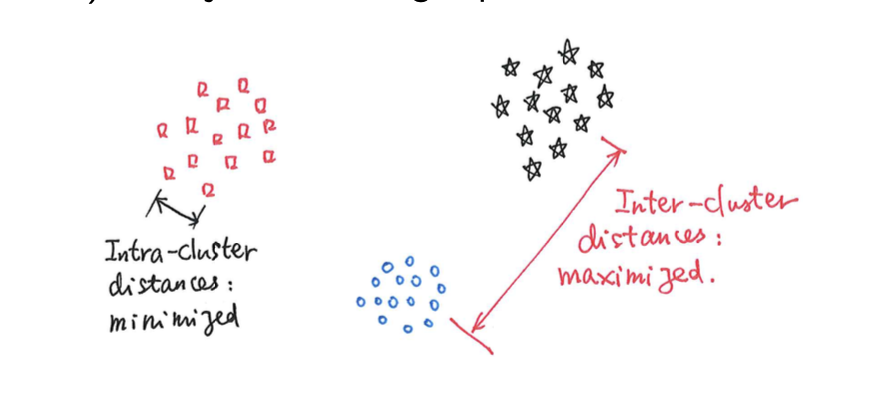 Intra-cluster
distances:
minimized
Inter-cluster
distances:
maximized.